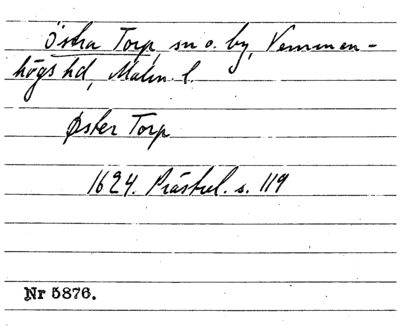 Östra Torp sn o. by, Vemmen-
högs hd, Malm. l.
Øster Torp
1624. Prästrel. s. 119
Nr 5876.